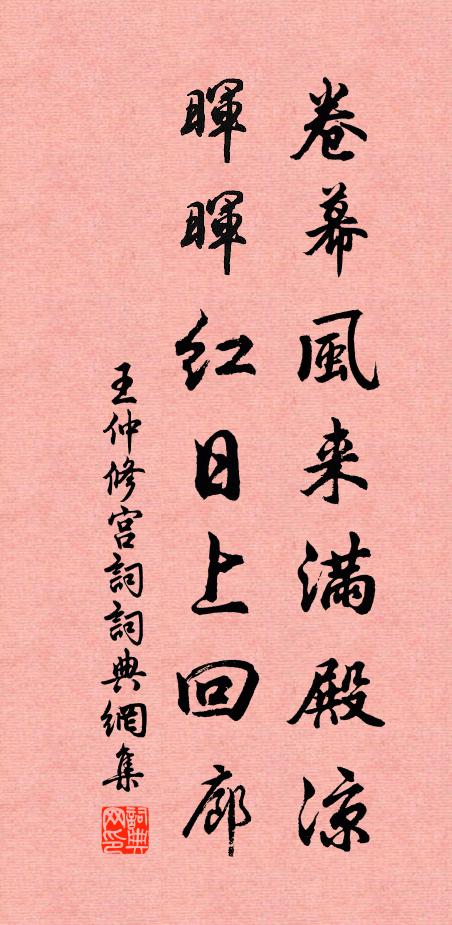 卷幕風来滿殿涼
暉暉紅日上回廊
王仲修宫詞詞典網集
詞典网印